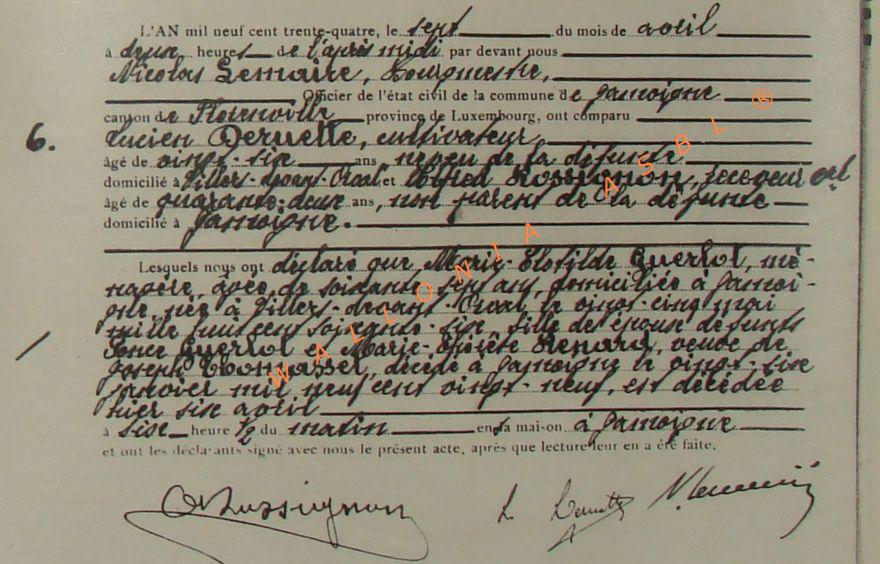 L'AN mil neuf cent trente-quatre, le sept du mois de avril
à deux heures de l'après midi par devant nous
Nicolas Lemaire, Bourgmestre,
Officier de l'état civil de la commune de Jamoigne
canton de Florenville province de Luxembourg, ont comparu
6. Lucien Dervette, cultivateur
âgé de vingt-six ans, neveu de la défunte
domicilié à Villers-devant-Orval et Alfred Rossignon, receveur cal
âgé de quarante-deux ans, non parent de la défunte
domicilié à Jamoigne.
Lesquels nous ont déclaré que Marie-Clotilde Guerlot, mé-
nagère, âgée de soixante-sept ans, domiciliée à Jamoi-
gne, née à Villers-devant-Orval le vingt-cinq mai
mille huit cent soixante-six, fille des époux défunts
Ponce Guerlot et Marie-Thérèse Renard, veuve de
Joseph Thomasset, décédé à Jamoigne le vingt-six
janvier mil neuf cent vingt-neuf, est décédée
hier six avril
à six heure 1/2 du matin en sa maison à Jamoigne
et ont les déclarants signé avec nous le présent acte, après que lecture leur en a été faite.
WALLONIA ASBL ®
ARossignon L Dervette N Lemaire